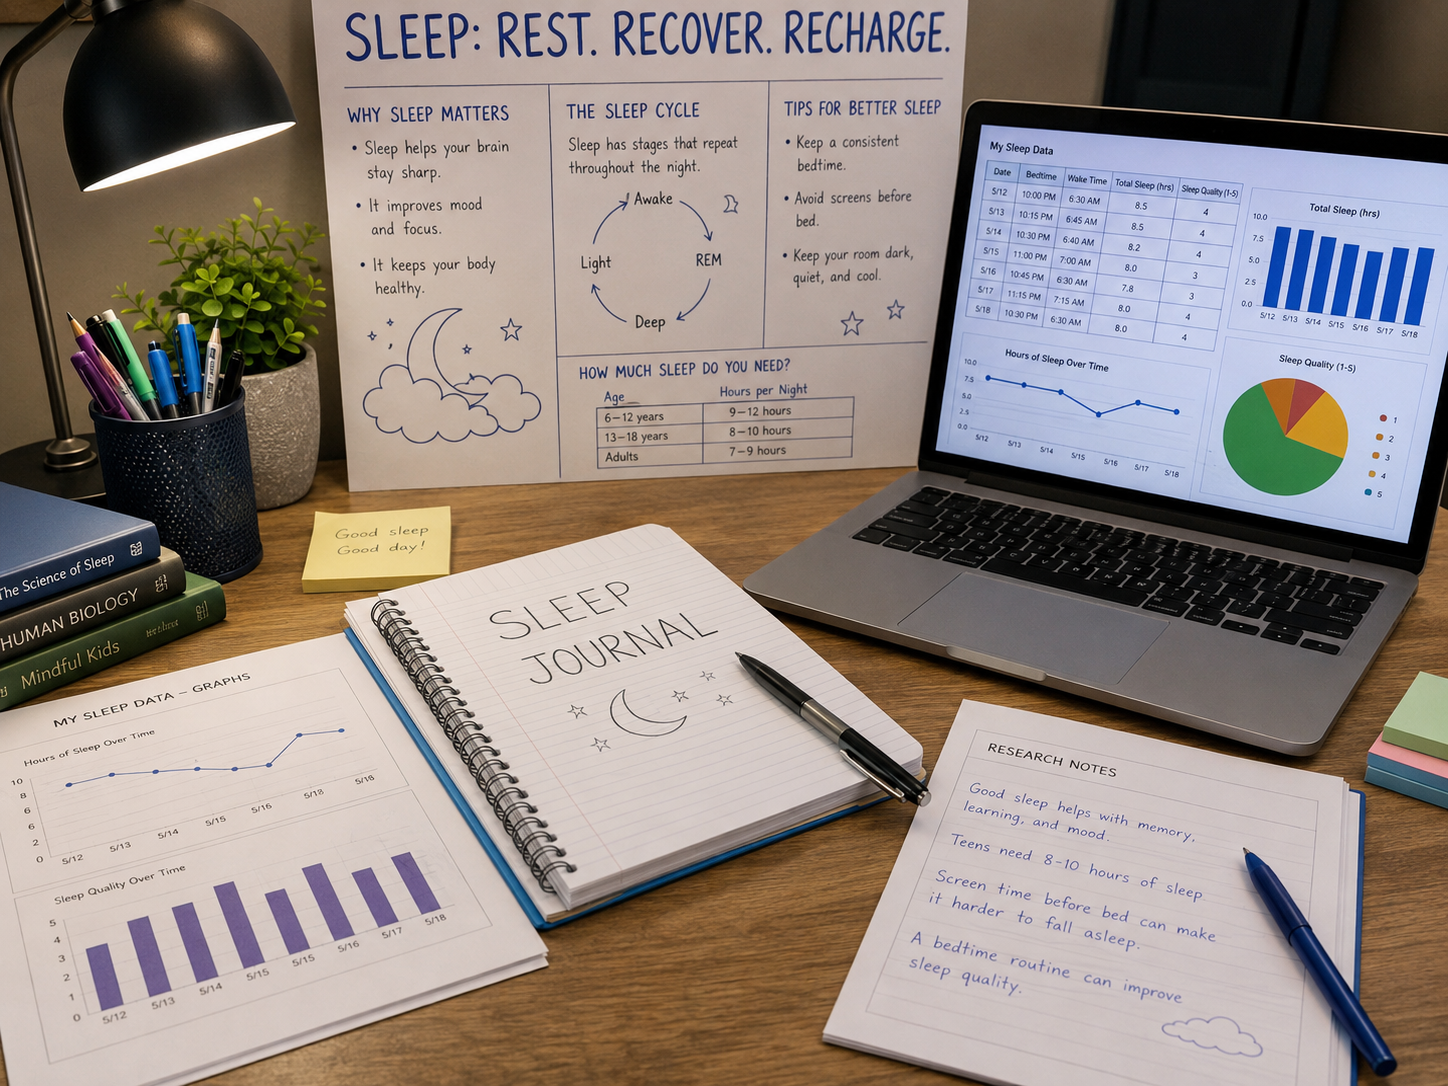 SLEEP: REST. RECOVER. RECHARGE.
WHY SLEEP MATTERS
• Sleep helps your brain
stay sharp.
• It improves mood
and focus.
• It keeps your body
healthy.
THE SLEEP CYCLE
Sleep has stages that repeat
throughout the night.
Awake
REM
Deep
Light
TIPS FOR BETTER SLEEP
• Keep a consistent
bedtime.
• Avoid screens before
bed.
• Keep your room dark,
quiet, and cool.
HOW MUCH SLEEP DO YOU NEED?
Age Hours per Night
6–12 years 9–12 hours
13–18 years 8–10 hours
Adults 7–9 hours
My Sleep Data
Date Bedtime Wake Time Total Sleep (hrs) Sleep Quality (1-5)
5/12 10:00 PM 6:30 AM 8.5 4
5/13 10:15 PM 6:45 AM 8.5 4
5/14 10:30 PM 6:40 AM 8.2 4
5/15 11:00 PM 7:00 AM 8.0 3
5/16 10:45 PM 6:30 AM 7.8 3
5/17 11:15 PM 7:15 AM 8.0 4
5/18 10:30 PM 6:30 AM 8.0 4
Total Sleep (hrs)
10.0
7.5
5.0
2.5
0.0
5/12 5/13 5/14 5/15 5/16 5/17 5/18
Hours of Sleep Over Time
10.0
7.5
5.0
2.5
0.0
5/12 5/13 5/14 5/15 5/16 5/17 5/18
Sleep Quality (1-5)
1
2
3
4
5
Good sleep
Good day!
The Science of Sleep
HUMAN BIOLOGY
Mindful Kids
SLEEP
JOURNAL
MY SLEEP DATA – GRAPHS
Hours of Sleep Over Time
10
8
6
2
0
5/12 5/13 5/14 5/15 5/16 5/18 5/18
Sleep Quality Over Time
5
4
3
2
1
0
5/12 5/13 5/14 5/15 5/15 5/16 5/17 5/18
RESEARCH NOTES
Good sleep helps with memory,
learning, and mood.
Teens need 8-10 hours of sleep
Screen time before bed can make
it harder to fall asleep.
A bedtime routine can improve
sleep quality.